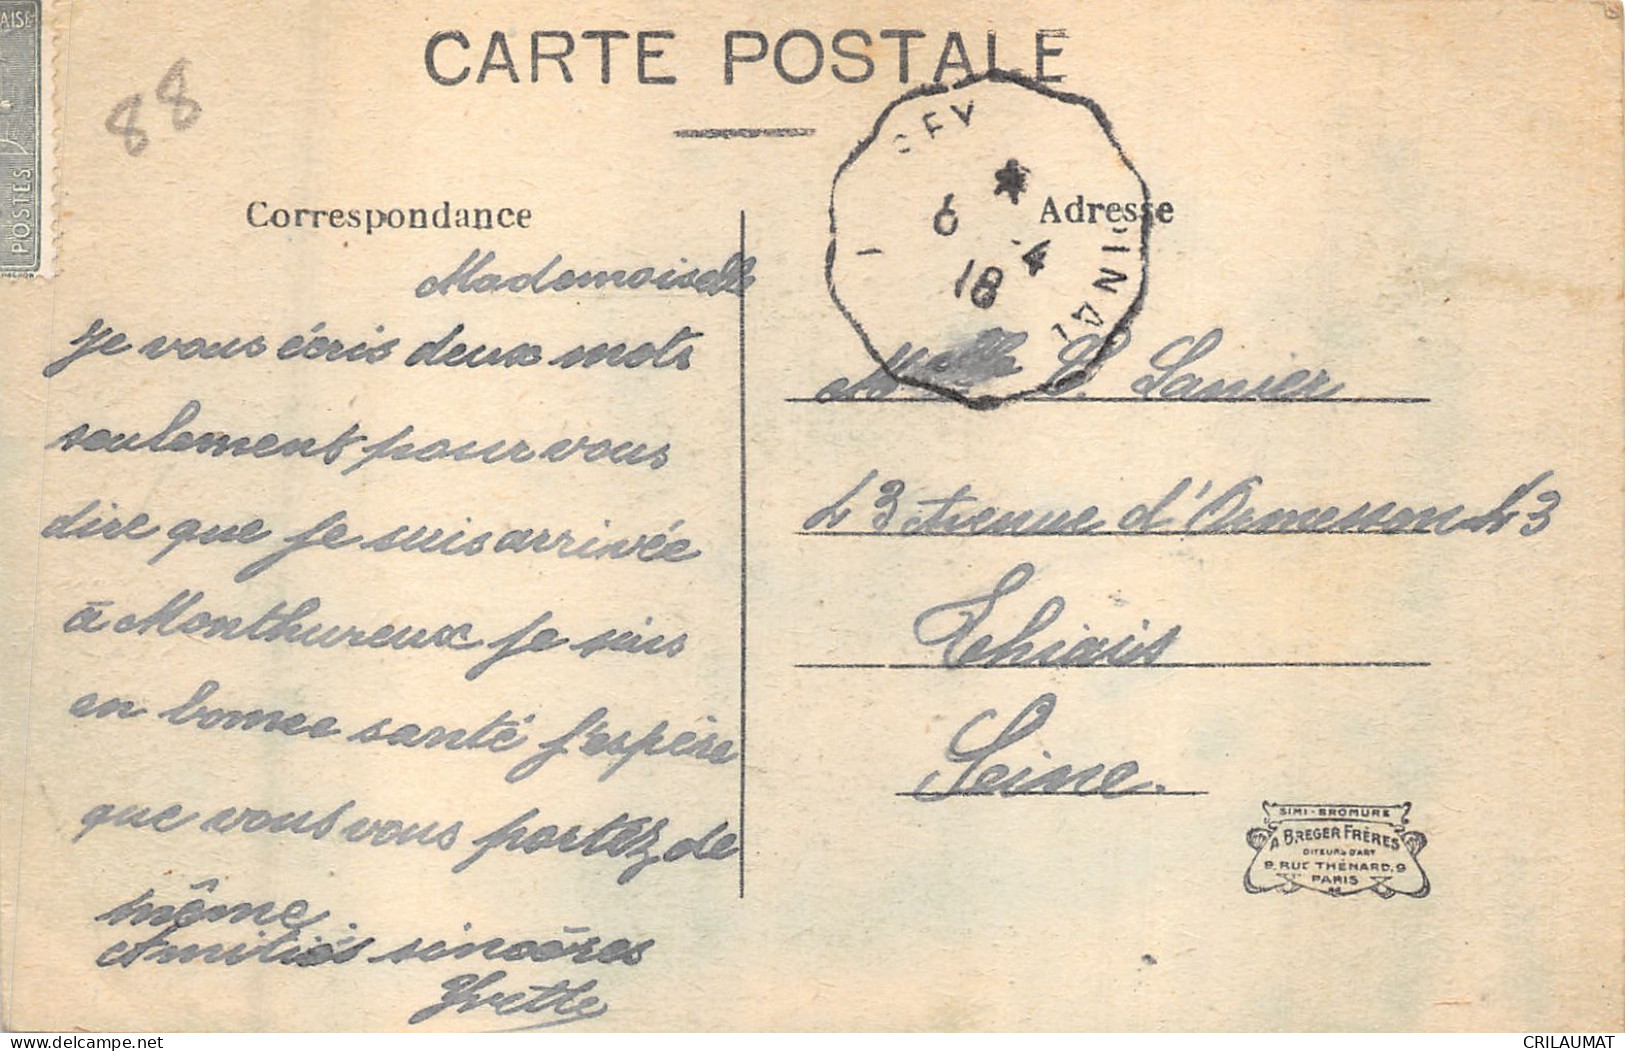 CARTE POSTALE
88
AISE
POSTES
Correspondance
Mademoiselle
Je vous écris deux mots
seulement pour vous
dire que je suis arrivée
à Monthureux je suis
en bonne santé j'espère
que vous vous portez de
même.
Amitiés sincères
Yvette
6 *
18 4
PINAL
Adresse
Melle C.
43 Avenue d'Ormesson 43
Thiais
Seine.
SIMI-BROMURE
A. BREGER FRÈRES
DITEURS D'ART
9, RUE THÉNARD, 9
PARIS
CRILAUMAT